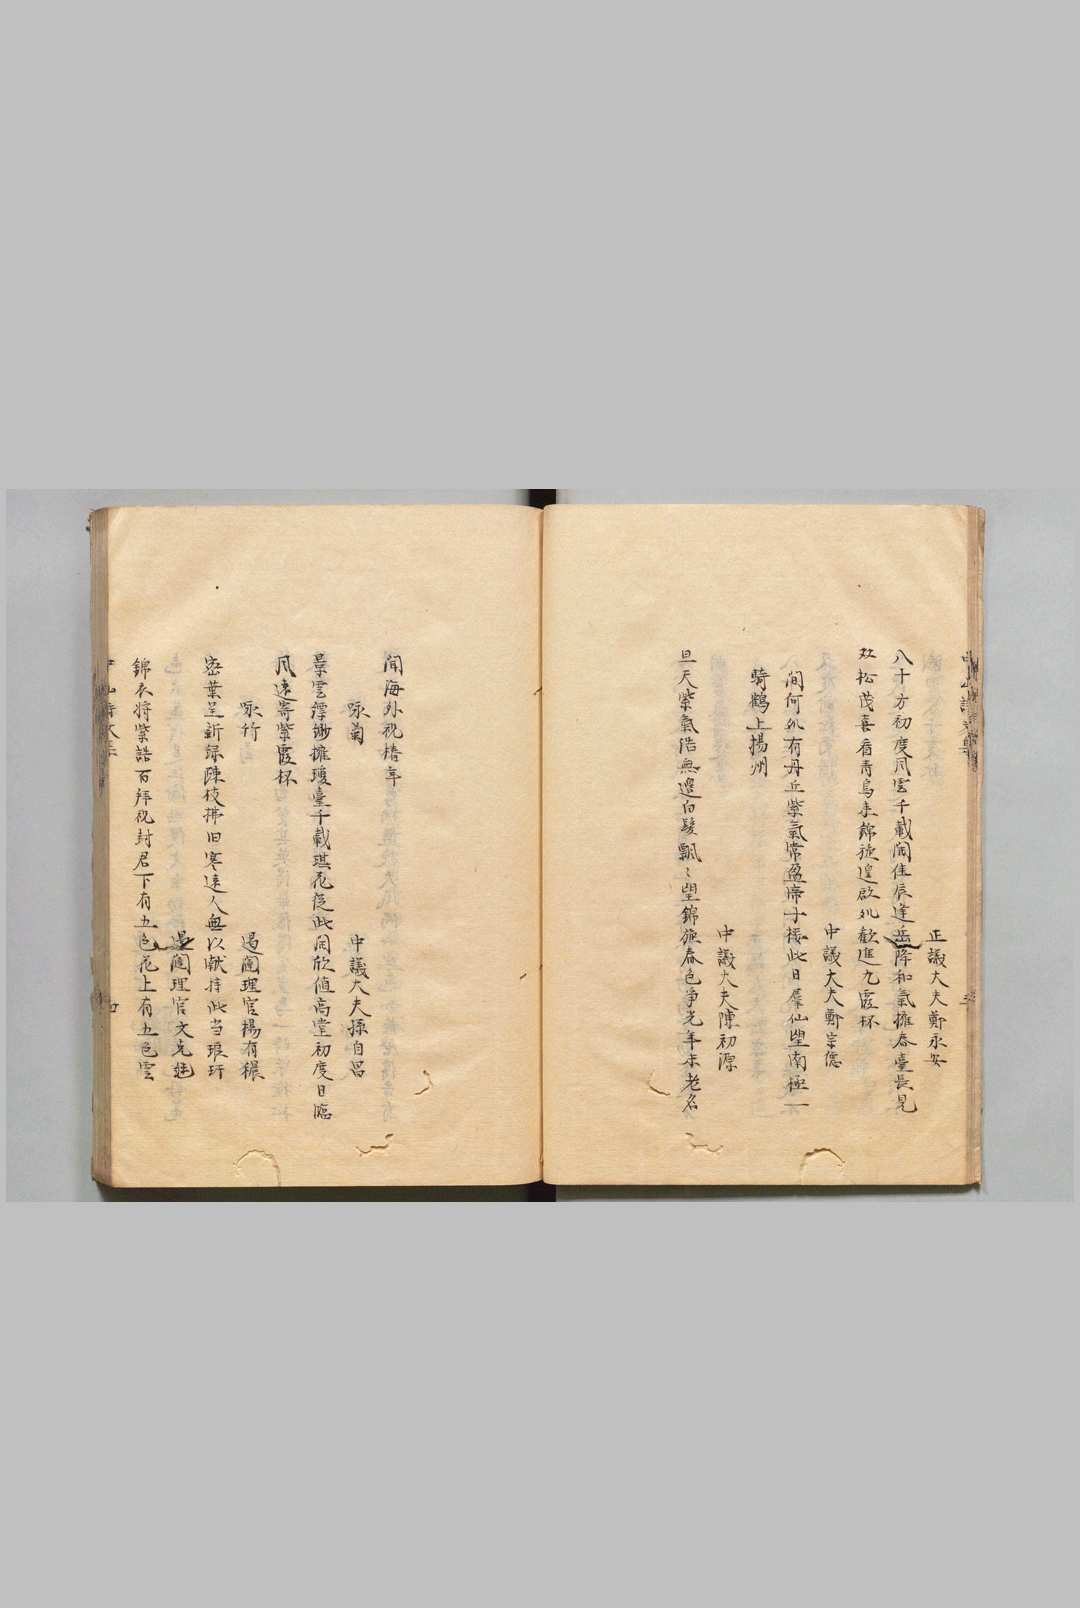 正議大夫鄭永安
八十方初度風雲千載開佳辰逢岳降和氣擁春臺長見
双松茂喜看青鳥來錦筵遑啟処歡進九霞杯
中議大夫鄭宗德
間何処有丹丘紫氣常盈婦子樓此日羣仙望南極一
騎鶴上揚州
中議大夫陳初源
旦天紫氣浩無邊白髮飄〻望錦旋春色爭光年未老名
聞海外祝椿亭
咏菊
中議大夫孫自昌
景雲縹緲擁瓊臺千載琪花從此開欣值高堂初度日臨
風遠寄紫霞杯
咏竹
遏闥理官楊有穰
密葉呈新緑疎枝拂旧寒遠人無以献持此当琅玕
遏闥理官文克継
錦衣将紫誥百拜祝封君下有五色花上有五色雲